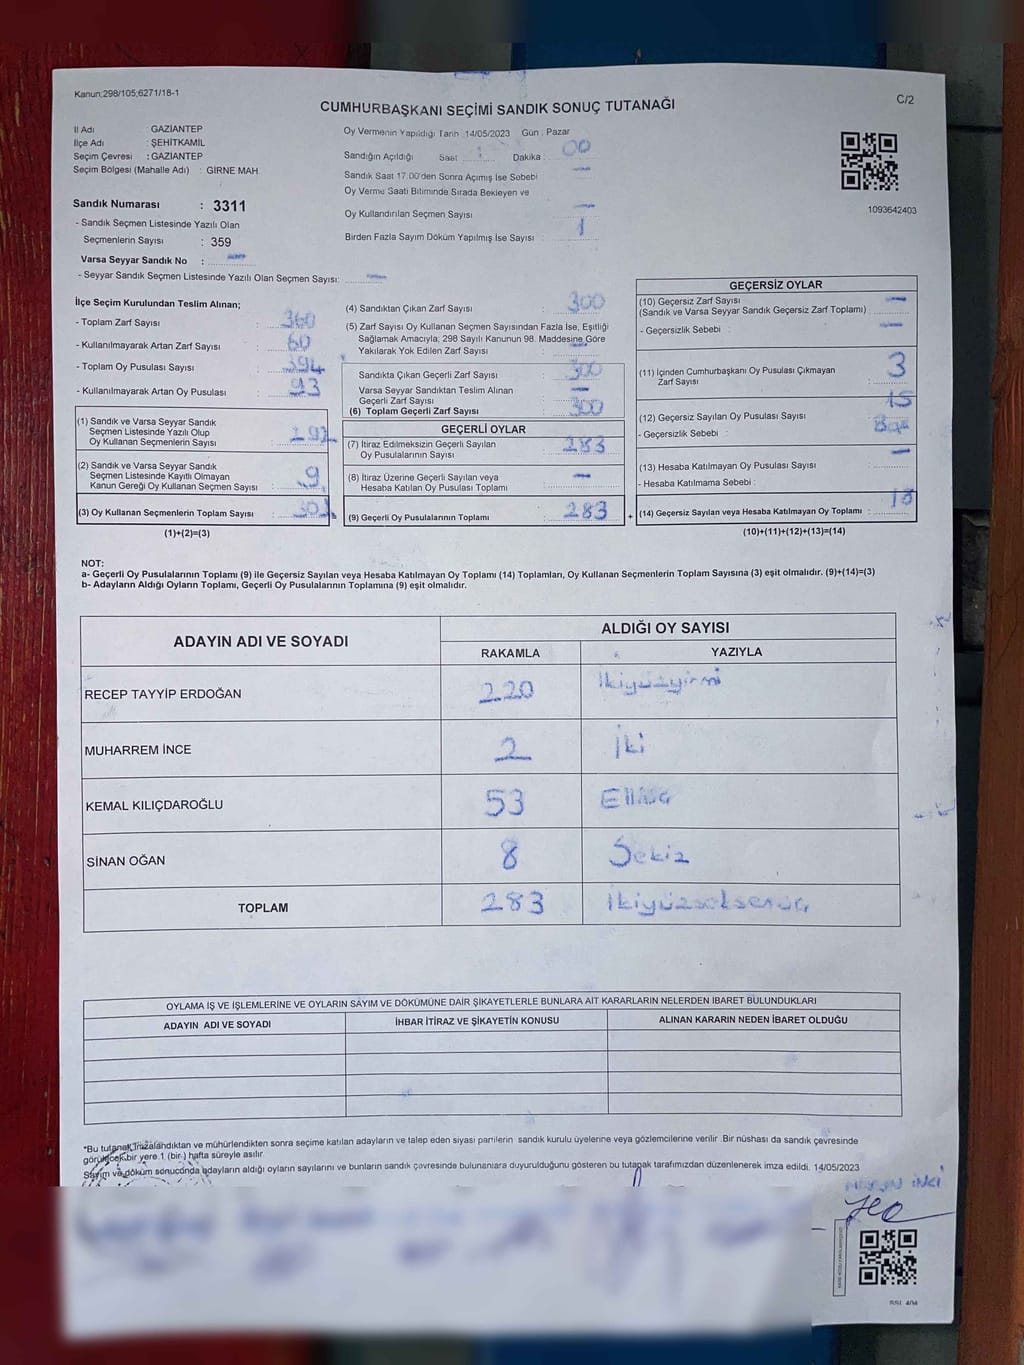 Kanun;298/105;6271/18-1
CUMHURBAŞKANI SEÇİMİ SANDIK SONUÇ TUTANAĞI
C/2
İl Adı GAZİANTEP
İlçe Adı : ŞEHİTKAMİL
Seçim Çevresi : GAZİANTEP
Seçim Bölgesi (Mahalle Adı) : GİRNE MAH
Sandık Numarası : 3311
- Sandık Seçmen Listesinde Yazılı Olan
Seçmenlerin Sayısı : 359
Varsa Seyyar Sandık No : —
- Seyyar Sandık Seçmen Listesinde Yazılı Olan Seçmen Sayısı: —
Oy Vermenin Yapıldığı Tarih :14/05/2023 Gün : Pazar
Sandığın Açıldığı Saat : Dakika : 00
Sandık Saat 17.00'den Sonra Açımış İse Sebebi : —
Oy Verme Saati Bitiminde Sırada Bekleyen ve
Oy Kullandırılan Seçmen Sayısı : —
Birden Fazla Sayım Döküm Yapılmış İse Sayısı : 1
1093642403
İlçe Seçim Kurulundan Teslim Alınan;
- Toplam Zarf Sayısı : 360
- Kullanılmayarak Artan Zarf Sayısı : 60
- Toplam Oy Pusulası Sayısı : 394
- Kullanılmayarak Artan Oy Pusulası : 93
(1) Sandık ve Varsa Seyyar Sandık
Seçmen Listesinde Yazılı Olup
Oy Kullanan Seçmenlerin Sayısı : 292
(2) Sandık ve Varsa Seyyar Sandık
Seçmen Listesinde Kayıtlı Olmayan
Kanun Gereği Oy Kullanan Seçmen Sayısı : 9
(3) Oy Kullanan Seçmenlerin Toplam Sayısı : 301
(1)+(2)=(3)
(4) Sandıktan Çıkan Zarf Sayısı : 300
(5) Zarf Sayısı Oy Kullanan Seçmen Sayısından Fazla İse, Eşitliği
Sağlamak Amacıyla; 298 Sayılı Kanunun 98. Maddesine Göre
Yakılarak Yok Edilen Zarf Sayısı : —
Sandıkta Çıkan Geçerli Zarf Sayısı : 300
Varsa Seyyar Sandıktan Teslim Alınan
Geçerli Zarf Sayısı : —
(6) Toplam Geçerli Zarf Sayısı : 300
GEÇERLİ OYLAR
(7) İtiraz Edilmeksizin Geçerli Sayılan
Oy Pusulalarının Sayısı : 283
(8) İtiraz Üzerine Geçerli Sayılan veya
Hesaba Katılan Oy Pusulası Toplamı : —
(9) Geçerli Oy Pusulalarının Toplamı : 283
+
GEÇERSİZ OYLAR
(10) Geçersiz Zarf Sayısı —
(Sandık ve Varsa Seyyar Sandık Geçersiz Zarf Toplamı) :
- Geçersizlik Sebebi : —
(11) İçinden Cumhurbaşkanı Oy Pusulası Çıkmayan
Zarf Sayısı : 3
(12) Geçersiz Sayılan Oy Pusulası Sayısı : 15
- Geçersizlik Sebebi :
(13) Hesaba Katılmayan Oy Pusulası Sayısı : —
- Hesaba Katılmama Sebebi :
(14) Geçersiz Sayılan veya Hesaba Katılmayan Oy Toplamı : 18
(10)+(11)+(12)+(13)=(14)
NOT:
a- Geçerli Oy Pusulalarının Toplamı (9) ile Geçersiz Sayılan veya Hesaba Katılmayan Oy Toplamı (14) Toplamları, Oy Kullanan Seçmenlerin Toplam Sayısına (3) eşit olmalıdır. (9)+(14)=(3)
b- Adayların Aldığı Oyların Toplamı, Geçerli Oy Pusulalarının Toplamına (9) eşit olmalıdır.
ADAYIN ADI VE SOYADI ALDIĞI OY SAYISI
RAKAMLA YAZIYLA
RECEP TAYYİP ERDOĞAN 220 İkiyüzyirmi
MUHARREM İNCE 2 İki
KEMAL KILIÇDAROĞLU 53 Elliüç
SİNAN OĞAN 8 Sekiz
TOPLAM 283 İkiyüzseksenüç
OYLAMA İŞ VE İŞLEMLERİNE VE OYLARIN SAYIM VE DÖKÜMÜNE DAİR ŞİKAYETLERLE BUNLARA AİT KARARLARIN NELERDEN İBARET BULUNDUKLARI
ADAYIN ADI VE SOYADI İHBAR İTİRAZ VE ŞİKAYETİN KONUSU ALINAN KARARIN NEDEN İBARET OLDUĞU
*Bu tutanak İmzalandıktan ve mühürlendikten sonra seçime katılan adayların ve talep eden siyasi partilerin sandık kurulu üyelerine veya gözlemcilerine verilir. Bir nüshası da sandık çevresinde
görülecek bir yere 1 (bir ) hafta süreyle asılır.
Sayım ve döküm sonucunda adayların aldığı oyların sayılarını ve bunların sandık çevresinde bulunanlara duyurulduğunu gösteren bu tutanak tarafımızdan düzenlenerek imza edildi. 14/05/2023